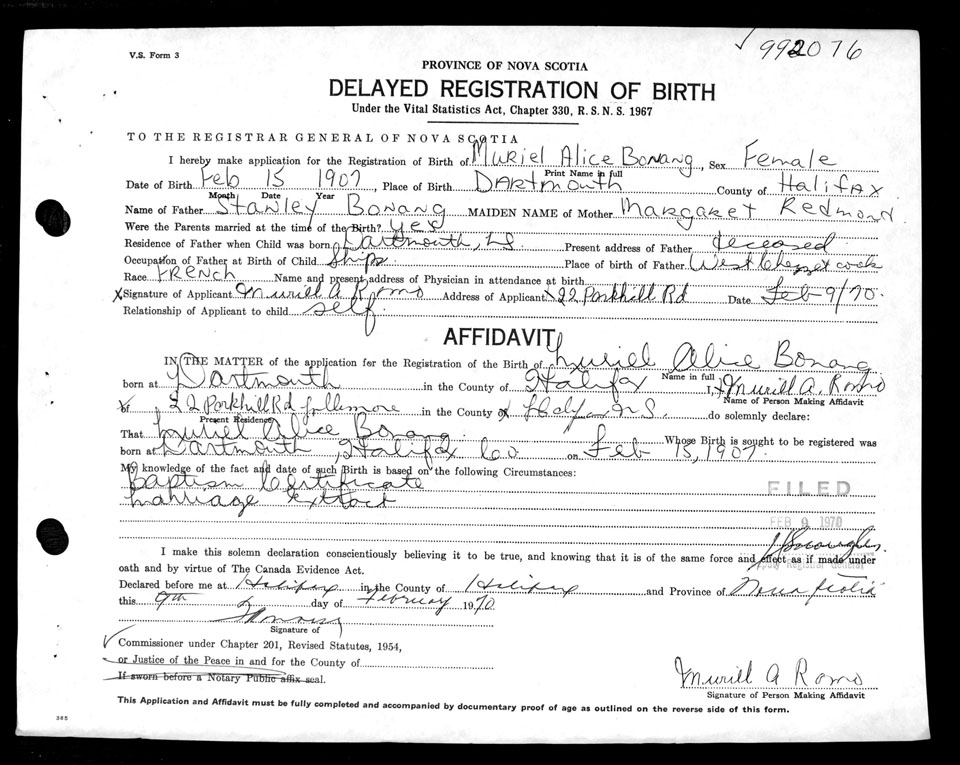 V.S. Form 3
992076
PROVINCE OF NOVA SCOTIA
DELAYED REGISTRATION OF BIRTH
Under the Vital Statistics Act, Chapter 330, R. S. N. S. 1967
TO THE REGISTRAR GENERAL OF NOVA SCOTIA
I hereby make application for the Registration of Birth of Muriel Alice Bonang, Sex Female
Print Name in full
Date of Birth Feb 15 1907, Place of Birth Dartmouth County of Halifax
Month Date Year
Name of Father Stanley Bonang MAIDEN NAME of Mother Margaret Redmond
Were the Parents married at the time of the Birth? yes
Residence of Father when Child was born Dartmouth, NS Present address of Father deceased
Occupation of Father at Birth of Child Ships Place of birth of Father West Chezzetcook
Race French Name and present address of Physician in attendance at birth
X Signature of Applicant Muriell A Romo Address of Applicant 22 Parkhill Rd Date Feb 9/70
Relationship of Applicant to child self
AFFIDAVIT
IN THE MATTER of the application for the Registration of the Birth of Muriel Alice Bonang
Name in full
born at Dartmouth in the County of Halifax I, Muriell A. Romo
Name of Person Making Affidavit
of 22 Parkhill Rd Jollimore in the County of Halifax NS. do solemnly declare:
Present Residence
That Muriel Alice Bonang Whose Birth is sought to be registered was
born at Dartmouth, Halifax Co on Feb 15, 1907
My knowledge of the fact and date of such Birth is based on the following Circumstances:
Baptism Certificate
Marriage Extract
FILED
FEB 9 1970
Deputy Registrar General
I make this solemn declaration conscientiously believing it to be true, and knowing that it is of the same force and effect as if made under
oath and by virtue of The Canada Evidence Act.
Declared before me at Halifax in the County of Halifax and Province of Nova Scotia
this 9th day of February 1970
Signature of
Commissioner under Chapter 201, Revised Statutes, 1954,
or Justice of the Peace in and for the County of
If sworn before a Notary Public affix seal.
Muriell A Romo
Signature of Person Making Affidavit
This Application and Affidavit must be fully completed and accompanied by documentary proof of age as outlined on the reverse side of this form.
385